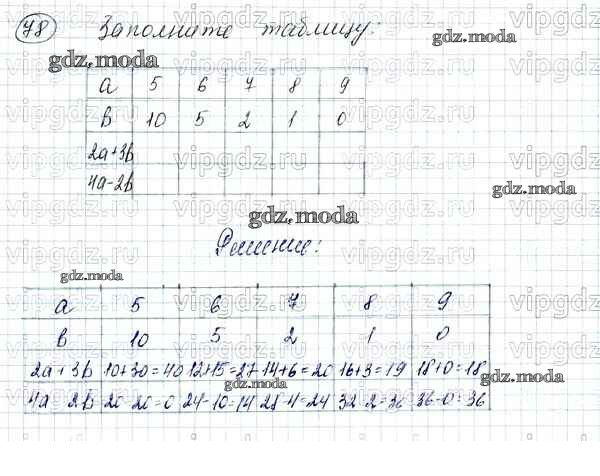 78 Заполните таблицу:
a 5 6 7 8 9
b 10 5 2 1 0
2a+3b
4a-2b
Решение:
a 5 6 7 8 9
b 10 5 2 1 0
2a+3b 10+30=40 12+15=27 14+6=20 16+3=19 18+0=18
4a-2b 20-20=0 24-10=14 28-4=24 32-2=36 36-0=36
gdz.moda
gdz.moda
gdz.moda
gdz.moda
gdz.moda
gdz.moda
gdz.moda
vipgdz.ru